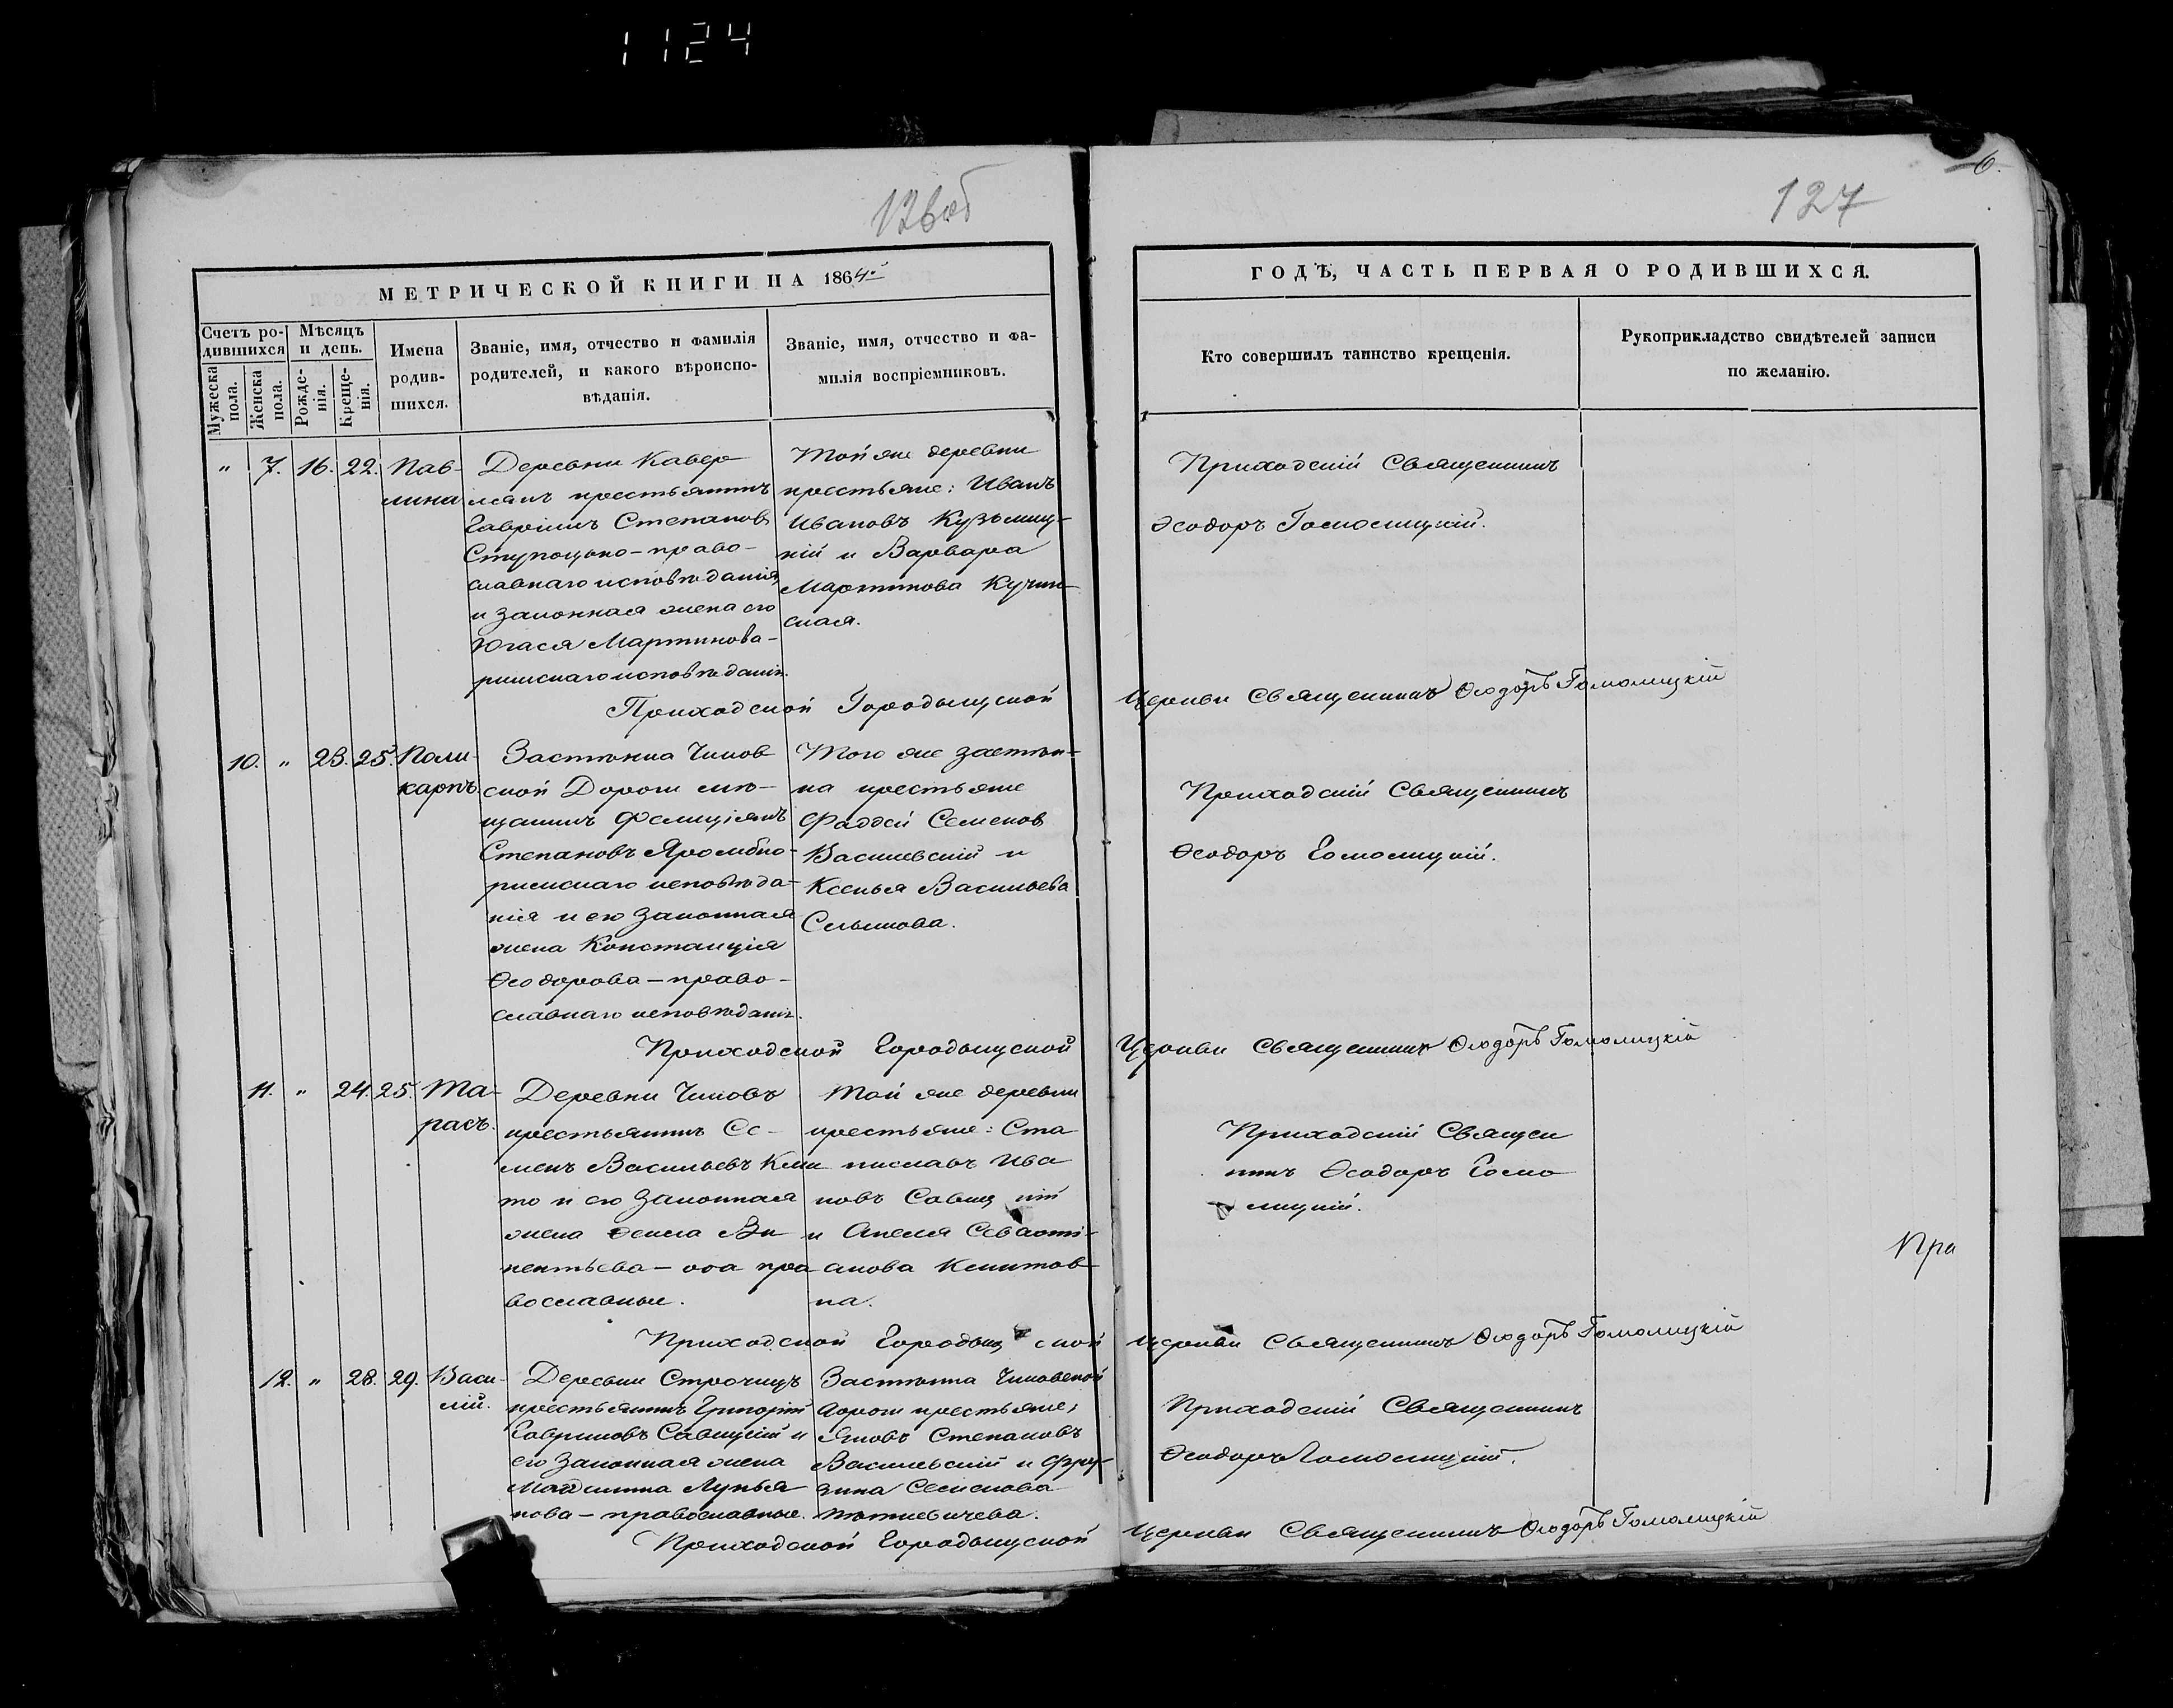 1124
126об
127
6.
МЕТРИЧЕСКОЙ КНИГИ НА 1864й
ГОДѢ, ЧАСТЬ ПЕРВАЯ О РОДИВШИХСЯ.
Счетъ ро-
дившихся
Мужеска
пола.
Женска
пола.
Мѣсяцъ
и день.
Рожде-
нія.
Креще-
нія.
Имена
родив-
шихся.
Званіе, имя, отчество и фамилія
родителей, и какого вѣроиспо-
вѣданія.
Званіе, имя, отчество и фа-
милія воспріемниковъ.
Кто совершилъ таинство крещенія.
Рукоприкладство свидѣтелей записи
по желанію.
" 7. 16. 22.
Пав-
лина
Деревни Кавер
лянъ крестьянинъ
Гавріилъ Степановъ
право-
славнаго исповѣданія
и законная жена его
Мартинова-
римскаго исповѣданія.
Той же деревни
крестьяне: Иванъ
Ивановъ Кузьмиц-
кій и Варвара
Мартинова Кучин-
ская.
Приходскій Священникъ
Ѳеодоръ Гомолицкій.
Приходской Городыщской
Церкви Священникъ Ѳеодоръ Гомолицкій
10. " 23. 25.
Поли-
карпъ.
Застѣнка Чуков
ской Дороги мѣ-
щанинъ Фелиціянъ
Степановъ
римскаго исповѣда-
нія и его законная
жена Констанція
Ѳеодорова-право-
славнаго исповѣданія.
Того же застѣн-
ка крестьяне
Фаддей Семенов
Василевскій и
Ксенья Васильева
Приходскій Священникъ
Ѳеодоръ Гомолицкій.
Приходской Городыщской
Церкви Священникъ Ѳеодоръ Гомолицкій
11. " 24. 25.
Та-
расъ.
Деревни Чуковъ
крестьянинъ Се-
менъ Васильевъ
то и его законная
жена Ѳекла Ви
кентьева-оба пра
вославные.
Той же деревни
крестьяне: Ста
ниславъ Ива
новъ Савиц кій
и Анеля Севасті-
анова
на.
Приходскій Священ
никъ Ѳеодоръ Гомо
лицкій.
Пра
Приходской Городыщ ской
Церкви Священникъ Ѳеодоръ Гомолицкій
12. " 28. 29.
Васи-
лій.
Деревни Строчицъ
крестьянинъ Григорій
Гавриловъ Савицкій и
его законная жена
Лукья
нова-православные.
Застѣнка Чуковской
Дороги крестьяне;
Яковъ Степановъ
Василевскій и Фру-
зина Семенова
Приходскій Священникъ
Ѳеодоръ Гомолицкій.
Приходской Городыщской
Церкви Священникъ Ѳеодоръ Гомолицкій